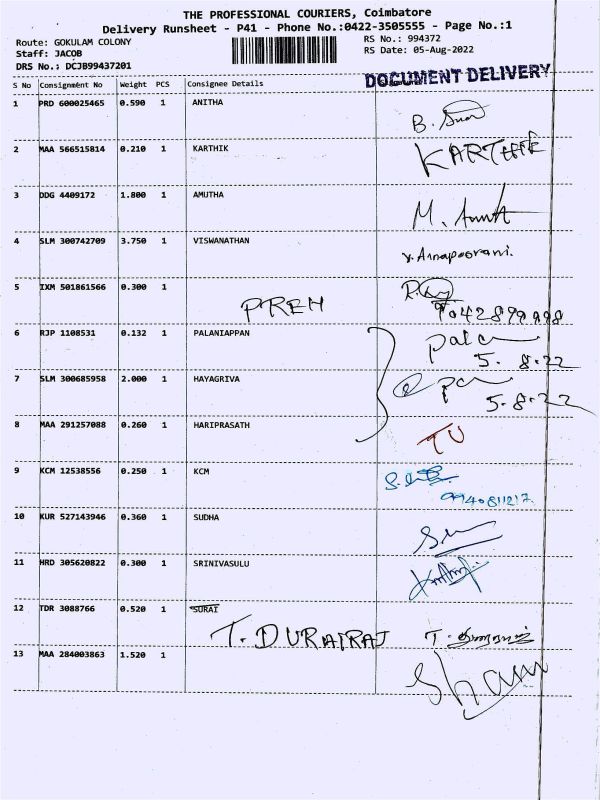 THE PROFESSIONAL COURIERS, Coimbatore
Delivery Runsheet - P41 - Phone No.:0422-3505555 - Page No.:1
Route: GOKULAM COLONY RS No.: 994372
Staff: JACOB RS Date: 05-Aug-2022
DRS No.: DCJB99437201
DOCUMENT DELIVERY
S No Consignment No Weight PCS Consignee Details
1 PRD 600025465 0.590 1 ANITHA
B.
2 MAA 566515814 0.210 1 KARTHIK KARTHIK
3 DDG 4409172 1.800 1 AMUTHA
M.
4 SLM 300742709 3.750 1 VISWANATHAN
v. Annapoorani.
5 IXM 501861566 0.300 1
PREM
6 RJP 1108531 0.132 1 PALANIAPPAN
5.8.22
7 SLM 300685958 2.000 1 HAYAGRIVA
5.8.22
8 MAA 291257088 0.260 1 HARIPRASATH
9 KCM 12538556 0.250 1 KCM
9940811217
10 KUR 527143946 0.360 1 SUDHA
11 HRD 305620822 0.300 1 SRINIVASULU
12 TDR 3088766 0.520 1 SURAI
T. DURAIRAJ
13 MAA 284003863 1.520 1